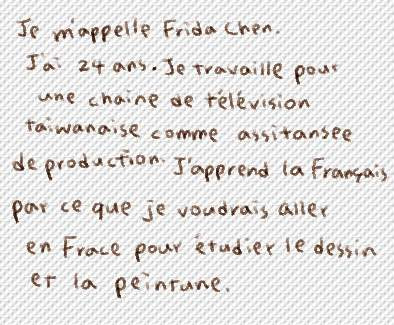 Je m'appelle Frida Chen.
J'ai 24 ans. Je travaille pour
une chaine de télévision
taiwanaise comme assitansee
de production. J'apprend la Français
par ce que je voudrais aller
en Frace pour étudier le dessin
et la peintune.